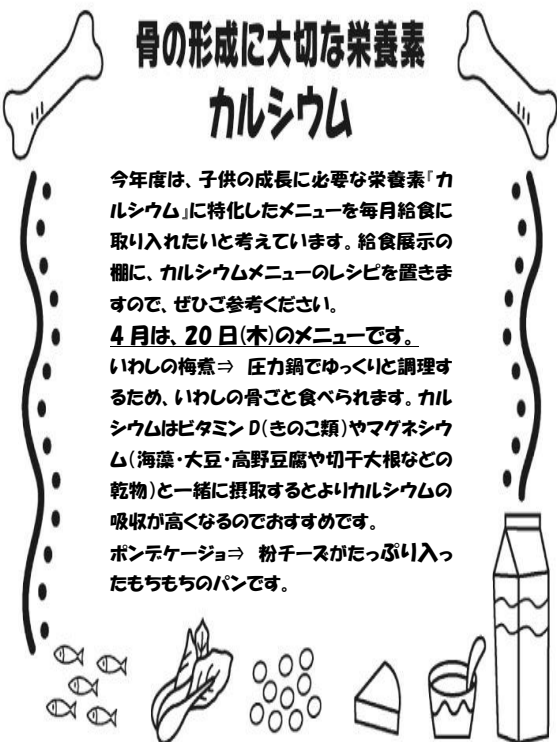 骨の形成に大切な栄養素
カルシウム
今年度は、子供の成長に必要な栄養素『カ
ルシウム』に特化したメニューを毎月給食に
取り入れたいと考えています。給食展示の
棚に、カルシウムメニューのレシピを置きま
すので、ぜひご参考ください。
4月は、20日(木)のメニューです。
いわしの梅煮⇒ 圧力鍋でゆっくりと調理す
るため、いわしの骨ごと食べられます。カル
シウムはビタミンD(きのこ類)やマグネシウ
ム(海藻・大豆・高野豆腐や切干大根などの
乾物)と一緒に摂取するとよりカルシウムの
吸収が高くなるのでおすすめです。
ポンデケージョ⇒ 粉チーズがたっぷり入っ
たもちもちのパンです。